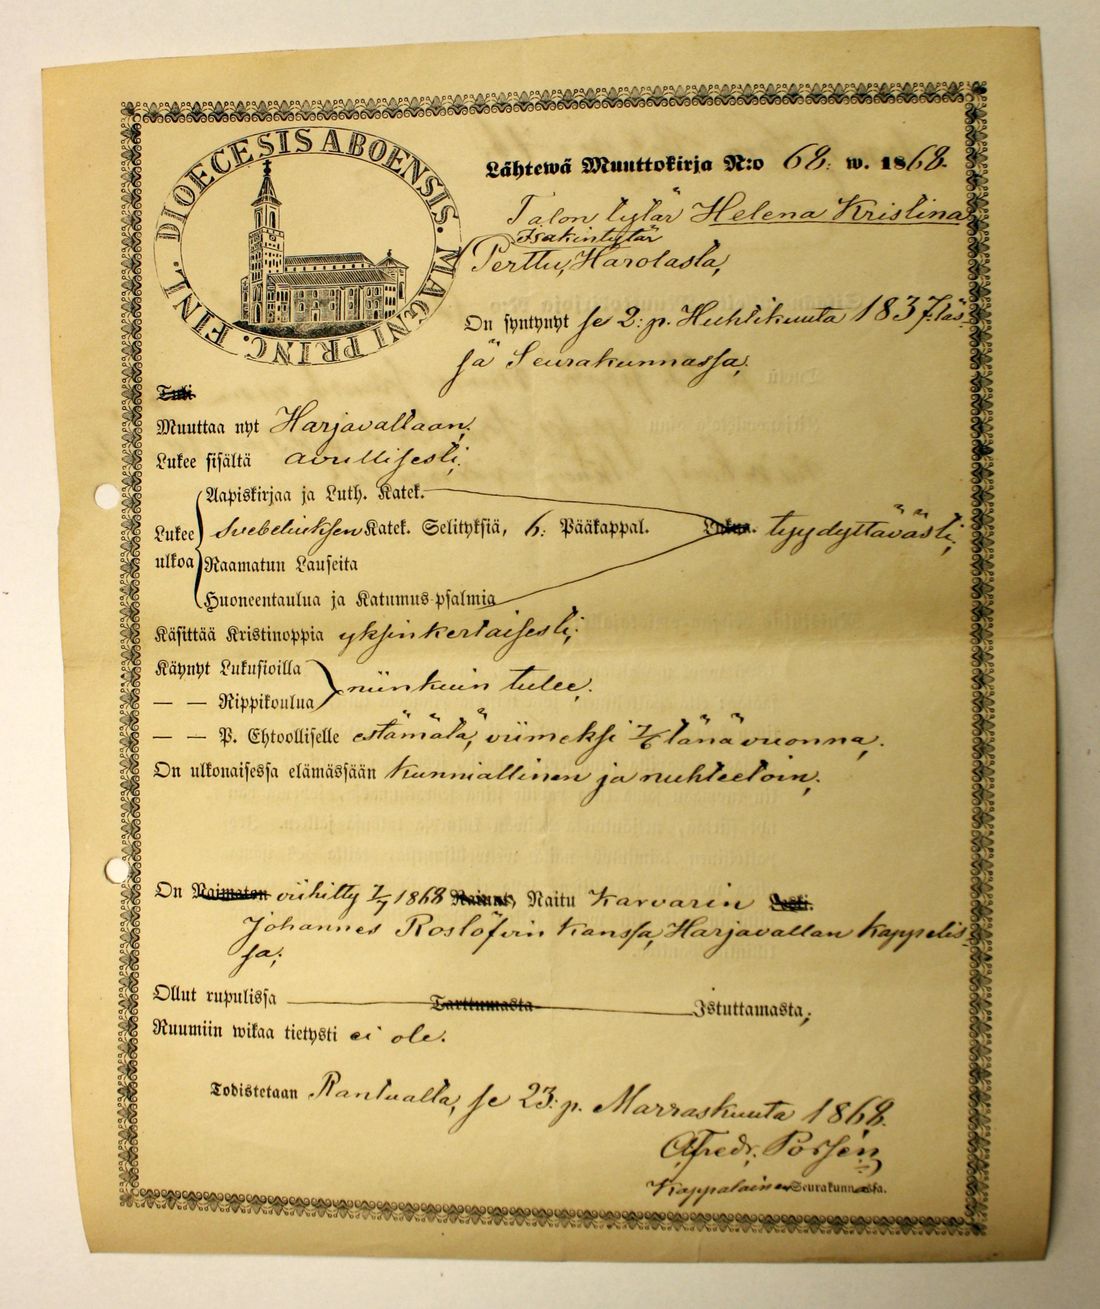 DIOECESIS ABOENSIS. MAGNI PRINC. FINL.
Lähtewä Muuttokirja N:o 68. w. 1868.
Talon tytär Helena Kristina
Isakintytär
Perttu Harolasta,
On syntynyt se 2: p. Huhtikuuta 1837 täs-
sä Seurakunnassa,
Tuli
Muuttaa nyt Harjavaltaan,
Lukee sisältä avullisesti,
Aapiskirjaa ja Luth. Katek.
Lukee Svebeliuksen Katek. Selityksiä, 6: Pääkappal. Lukua. tyydyttävästi,
ulkoa Raamatun Lauseita
Huoneentaulua ja Katumus-psalmia
Käsittää Kristinoppia yksinkertaisesti,
Käynyt Lukusioilla
— — Rippikoulua niinkuin tulee,
— — P. Ehtoolliselle estämätä, viimeksi 7/6 tänä vuonna,
On ulkonaisessa elämässään kunniallinen ja nuhteetoin,
On Naimaton vihitty 1868 Naitu Karvarin Leski.
Johannes Roslöfvin kanssa, Harjavallan kappelis-
sa,
Ollut rupulissa Tarttumasta Istuttamasta,
Ruumiin wikaa tietysti ei ole.
Todistetaan Rantualla, se 23: p. Marraskuuta 1868.
Alfredr. Porsén
Kappalainen Seurakunnassa.